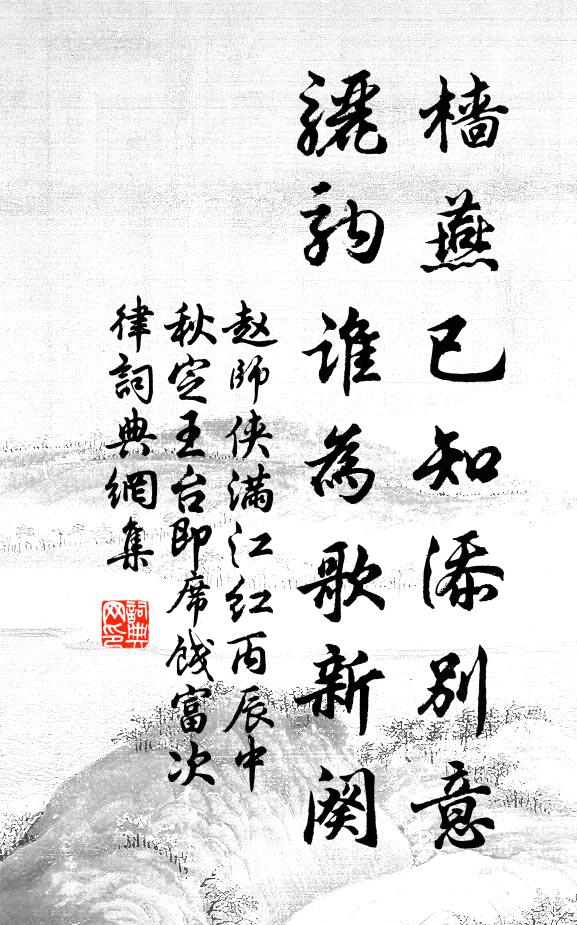 樯燕已知添別意
驪駒誰為歌新闋
赵師俠满江红丙辰中
秋定王台即席餞富次
律詞典網集
詞典网印